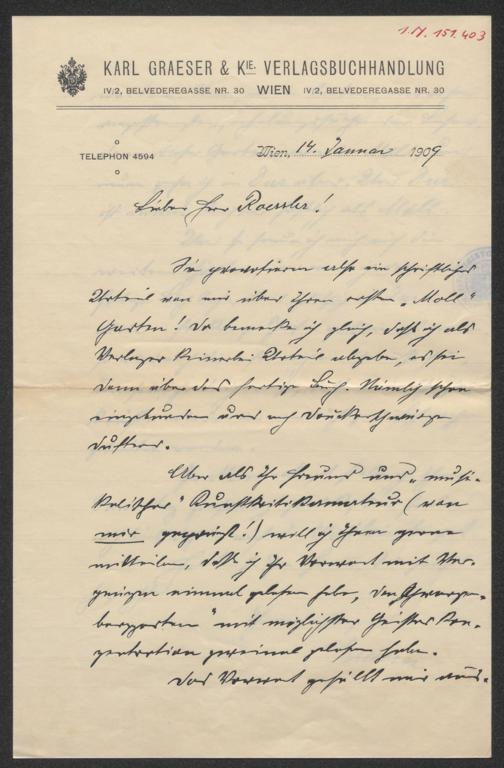 1.N. 151.403
KARL GRAESER & KIE. VERLAGSBUCHHANDLUNG
IV/2, BELVEDEREGASSE NR. 30 WIEN IV/2, BELVEDEREGASSE NR. 30
TELEPHON 4594
Wien, 14. Januar 1909
Lieber Herr Roessler!
Sie provozieren also ein schriftliches
Urteil von mir über Ihren ersten „Moll"
Garten! Da bemerke ich gleich, daß ich als
Verleger keinerlei Urteil abgebe, es sei
denn über das fertige Buch. Nämlich schon
eingebunden und nach Druckerschwärze
duftend.
Aber als Ihr Freund und „musi-
kalischer" Kunstkritikamateur (von
mir geprägt!) will ich Ihnen gerne
mitteilen, daß ich Ihr Vorwort mit Ver-
gnügen einmal gelesen habe, den „Schwarzen-
berggarten" mit möglichster Geisteskon-
zentration zweimal gelesen habe.
Das Vorwort gefällt mir aus-